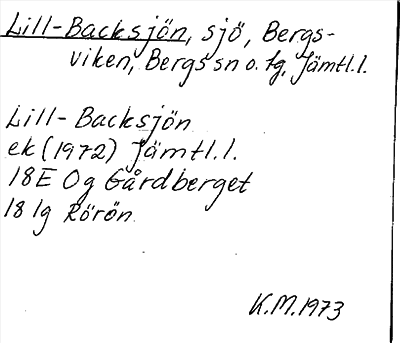 Lill-Backsjön, sjö, Bergs-
viken, Bergs sn o. tg, Jämtl.l.
Lill-Backsjön
ek (1972) Jämtl.l.
18E 0g Gårdberget
18 1g Rörön
K.M.1973